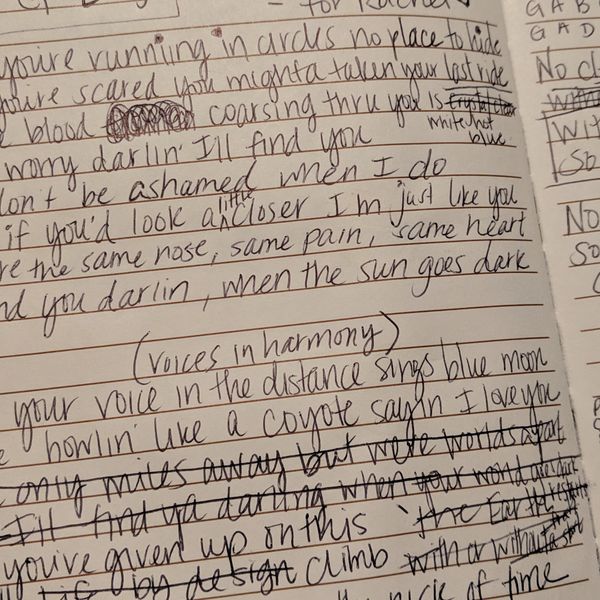 for Rachel
you're running in circles no place to hide
you're scared you mighta taken your last ride
blood coarsing thru you is white hot blue
worry darlin' I'll find you
don't be ashamed when I do
if you'd look a little closer I'm just like you
re the same nose, same pain, same heart
nd you darlin, when the sun goes dark
(voices in harmony)
your voice in the distance sings blue moon
howlin' like a coyote sayin I love you
only miles away but we're worlds apart
I'll find ya darling when your world
you've given up on this the Earth
by design climb with or without
nick of time
G A B
G A D
No cl
with
Wit
So
No
So